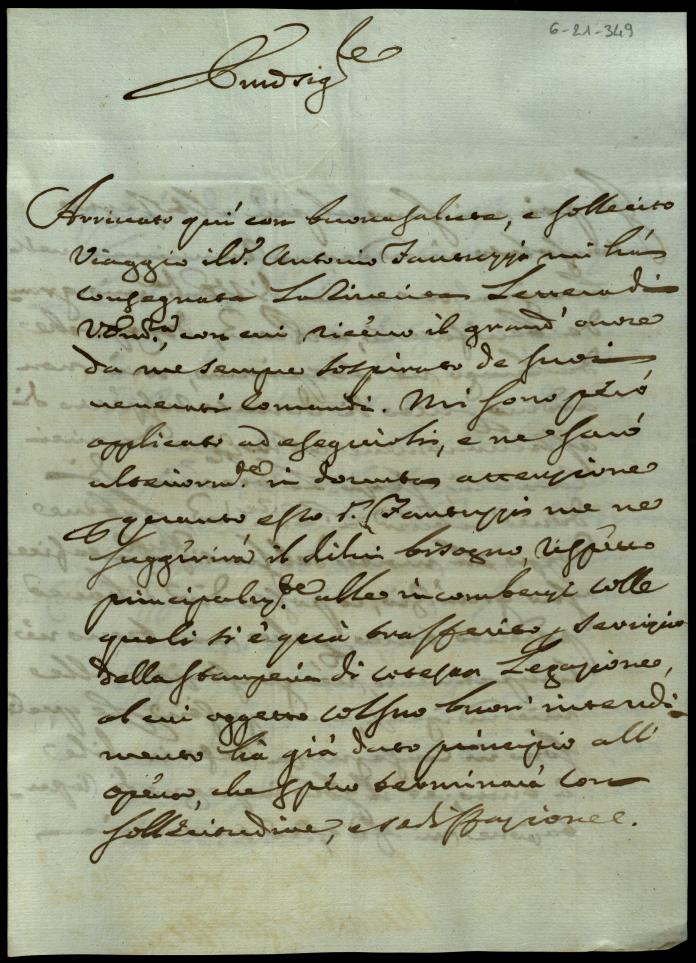 6-21-349
Emo Sig.re
Arrivato quì con buona salute, e sollecito
Viaggio il S.r Antonio Fantuzzi mi hà
consegnata la Lettera di
V. Em.za con cui ricevo il grand' onore
da me sempre sospirato de suoi
venerati Comandi. Mi sono però
applicato ad eseguirli, e ne sarò
ulteriorm.te in dovuta attenzione
quanto esso S.r Fantuzzi me ne
suggerirà il di lui bisogno, rispetto
principalm.te alle incombenze colle
quali si è quà trasferito p servizio
della Stamperia di cotesta Legazione,
al cui oggetto col suo buon intendi-
mento hà già dato principio all'
opera, che spero terminarà con
sollecitudine, e sadisfazione.